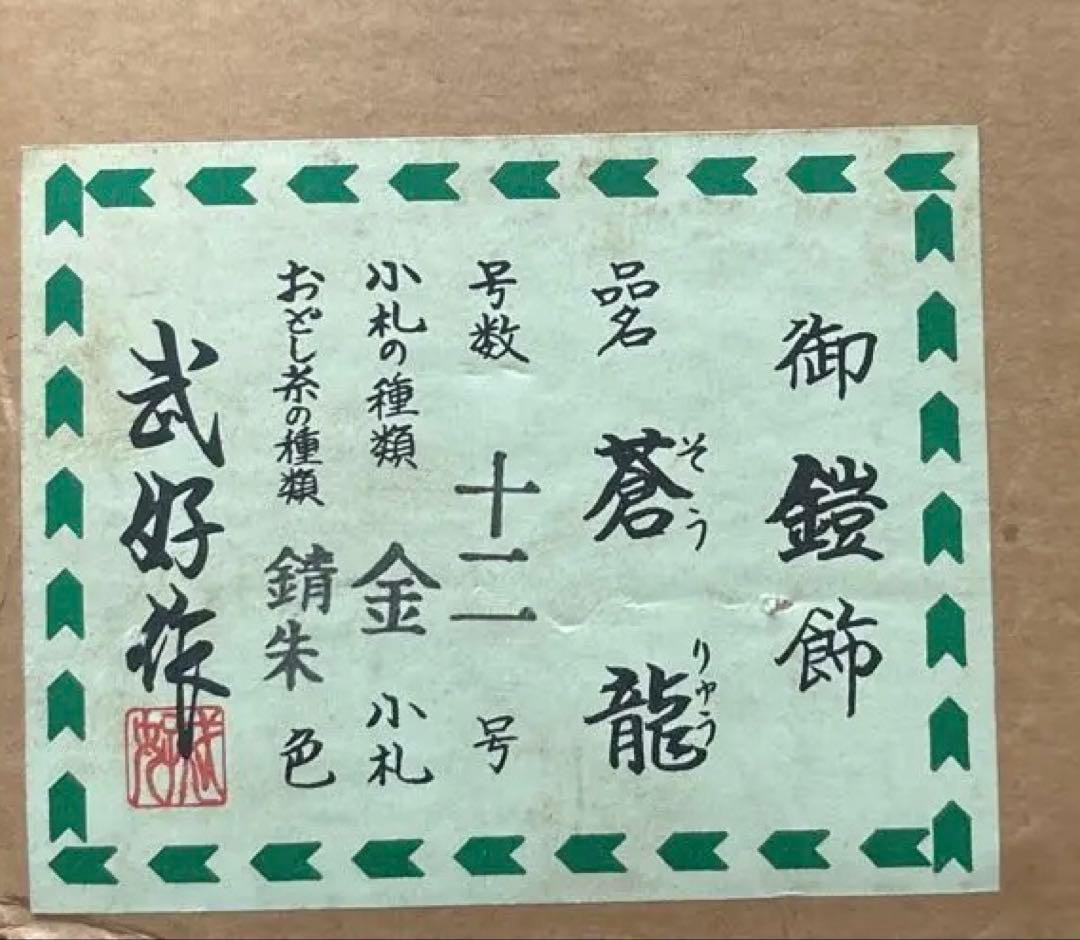 御鎧飾
品名 蒼龍
そうりゅう
号数 十二号
小札の種類 金小札
おどし糸の種類 錆朱色
武好作
武好